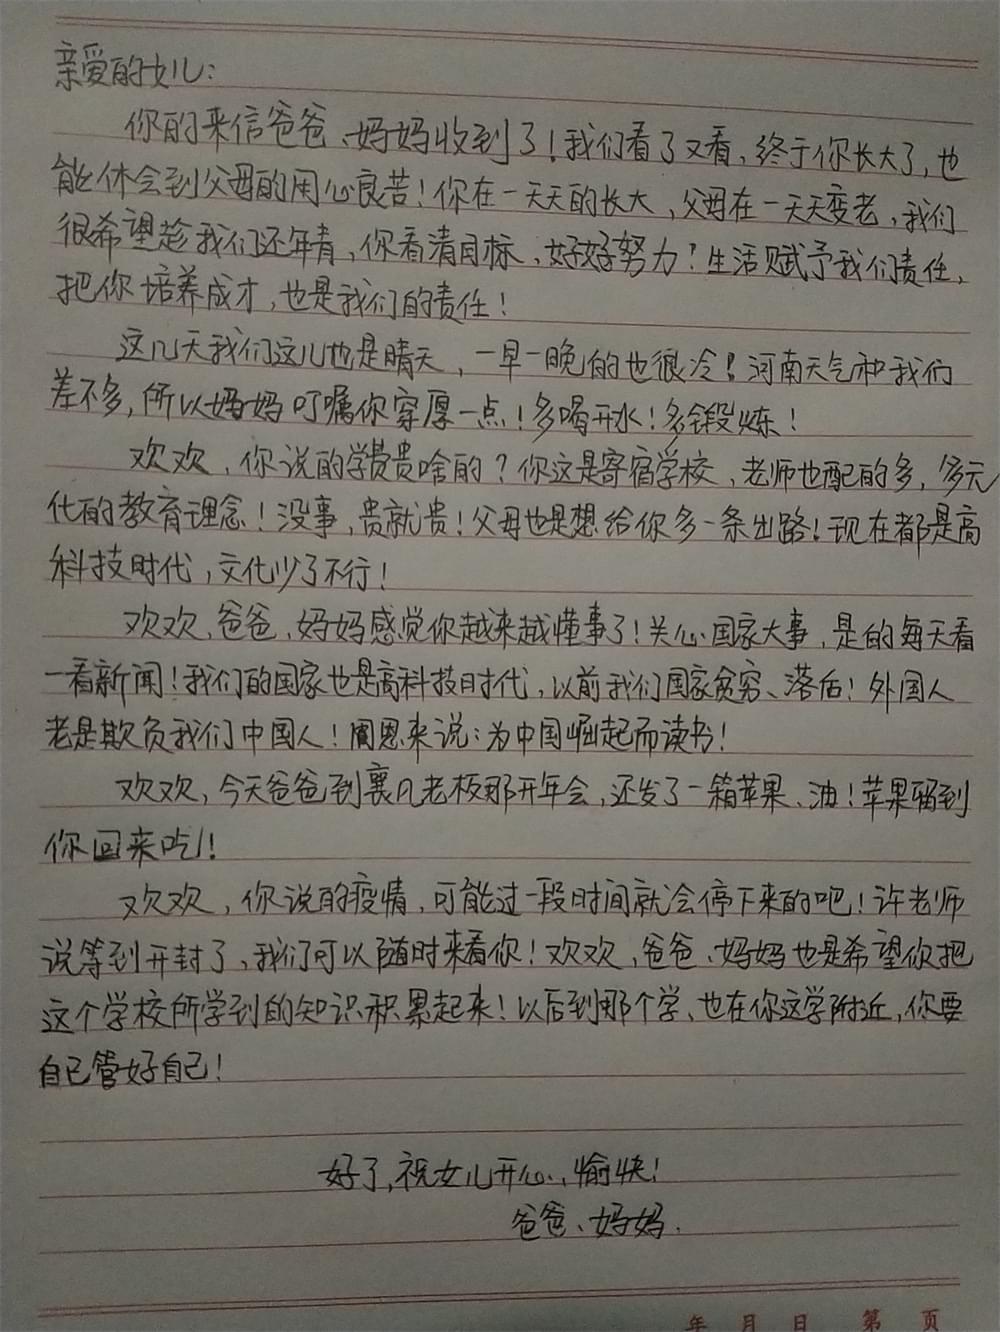 亲爱的女儿：
你的来信爸爸、妈妈收到了！我们看了又看，终于你长大了，也
能体会到父母的用心良苦！你在一天天的长大，父母在一天天变老，我们
很希望趁我们还年青，你看清目标，好好努力？生活赋予我们责任，
把你培养成才，也是我们的责任！
这几天我们这儿也是晴天，一早一晚的也很冷！河南天气和我们
差不多，所以妈妈叮嘱你穿厚一点！多喝开水！多锻炼！
欢欢，你说的学费贵啥的？你这是寄宿学校，老师也配的多，多元
化的教育理念！没事，贵就贵！父母也是想给你多一条出路！现在都是高
科技时代，文化少了不行！
欢欢，爸爸、妈妈感觉你越来越懂事了！关心国家大事，是的每天看
一看新闻！我们的国家也是高科技时代，以前我们国家贫穷、落后！外国人
老是欺负我们中国人！周恩来说：为中国崛起而读书！
欢欢，今天爸爸到襄凡老板那开年会，还发了一箱苹果、油！苹果留到
你回来吃！
欢欢，你说的疫情，可能过一段时间就会停下来的吧！许老师
说等到开封了，我们可以随时来看你！欢欢，爸爸、妈妈也是希望你把
这个学校所学到的知识积累起来！以后到那个学、也在你这学附近，你要
自己管好自己！
好了，祝女儿开心、愉快！
爸爸、妈妈.
年 月 日 第 页